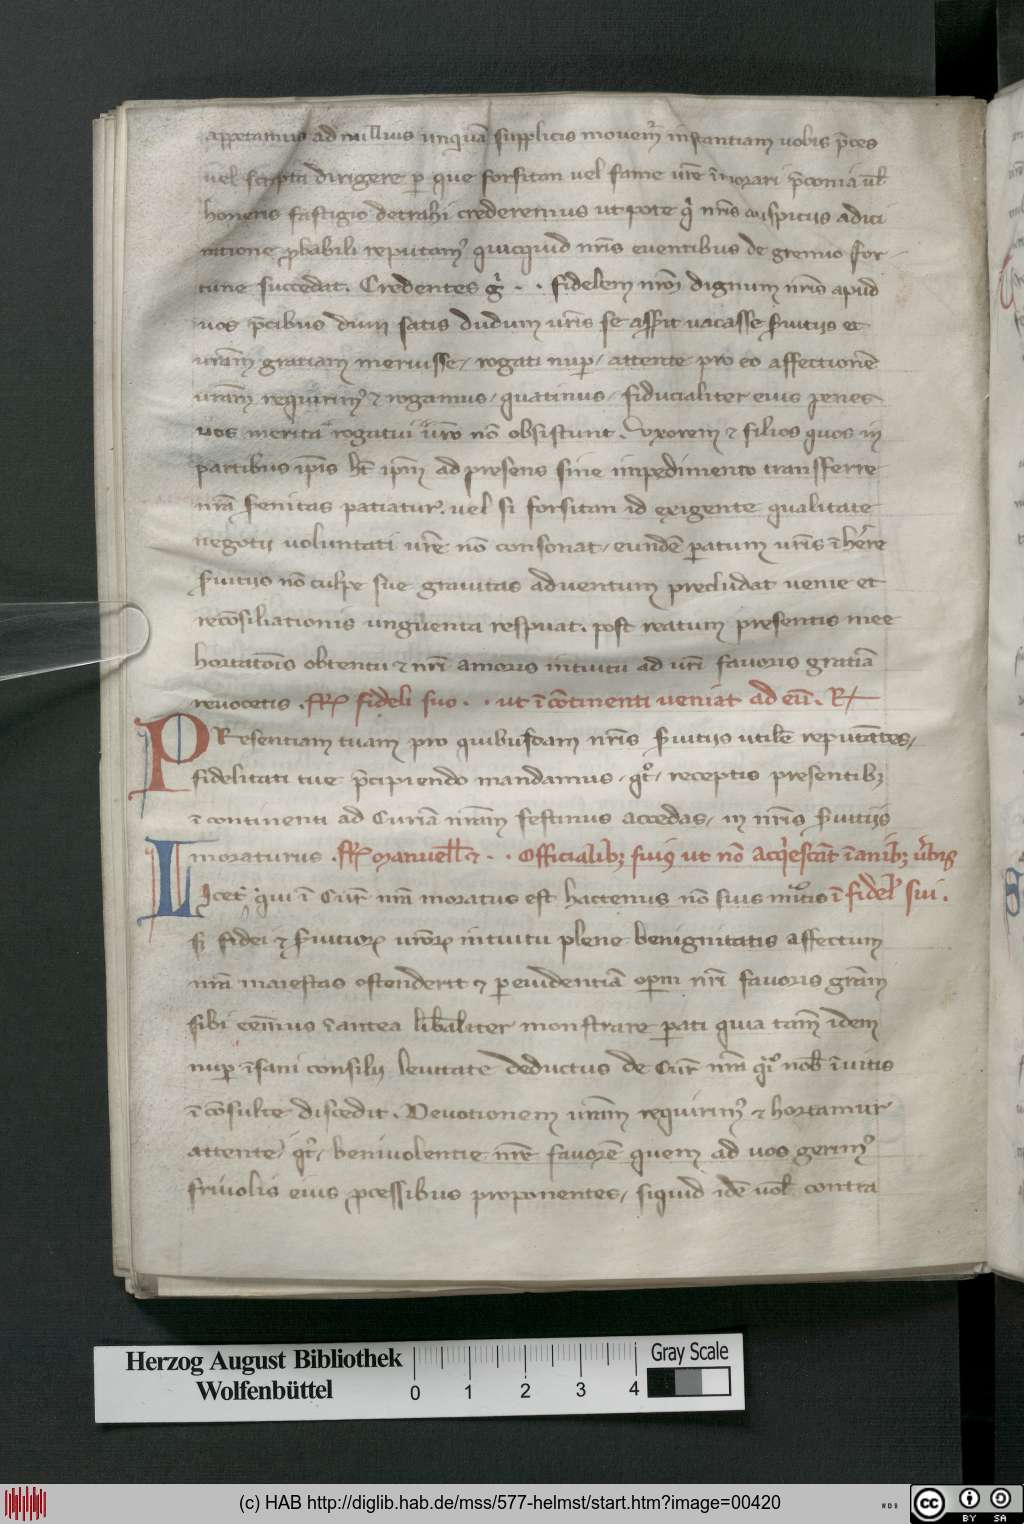 appetamus ad nullius unquā supplicis mouem̄ instantiam uobis p̄ces
uel scripta dirigere per que forsitan uel fame ur̄e īnorari p̄conia ul̄
honeris fastigio detrahi crederemus utpote qͥ nr̄is auspiciis adici
ratione ꝓbabili reputamꝰ quicquid nr̄is euentibus de gremio for
tune succedat. Credentes gͥ . . fidelem nr̄m dignum nr̄is apud
uos p̄cibus dum satis dudum ur̄is se asserit uacasse s̄uitiis et
ur̄am gratiam meruisse / rogati nuꝑ / attente pro eo affectionē
ur̄am requirimꝰ ⁊ rogamus / quatinus / fiducialiter eius penes
uos merita rogatui ur̄o nō obsistunt. Vxorem ⁊ filios quos in
partibus ip̄is ht̄ ip̄m ad presens sine impedimento transferre
ur̄a s̄enitas patiatur. uel si forsitan id exigente qualitate
negotii uoluntati ur̄e nō consonat / eundē ꝑatum ur̄is īherē
s̄uitiis nō culpe sue grauitas aduentum precludat uenie et
recōsiliationis unguenta respuat. post reatum presentis mee
hortatōis obtentu ⁊ nr̄i amoris intuitu ad ur̄i fauoris gratiā
reuocetis . Fr̄. fideli suo . . ut īcōtinenti ueniat ad eū. R
PResentiam tuam pro quibusdam nr̄is s̄uitiis utilē reputātes /
fidelitati tue p̄cipiendo mandamus / qͭ⁰ / receptis presentibꝫ
ī continenti ad Curiā nr̄am festinus accedas / in nr̄is s̄uitiis
moraturus . Fr̄. Manuel . . Officialibꝫ suis ut nō acq̄escāt īanibꝫ ūbis
LIcet qͥui ī Cur̄ nr̄a moratus est hactenus nō suis mitis ī fidel̄ sui .
sꝫ fidei ⁊ s̄uitioꝝ ur̄oꝝ intuitu plene benignitatis affectum
nr̄a maiestas ostenderit ⁊ ꝑ euidentiā oꝑm nr̄i fauoris gr̄am
sibi cēmus īantea lib̄aliter monstrare ꝑati quia tam̄ idem
nuꝑ īsani consilii leuitate deductus de Cur̄ nr̄a nob̄ īuitis
īcōsulte discedit. Deuotionem ur̄am requirimꝰ ⁊ hortamur
attente / qͭ⁰ / beniuolentie nr̄e fauorē quem ad uos gerimꝰ
friuolis eius ꝓcessibus proponentes / siquid idē uob̄ contra
Herzog August Bibliothek
Wolfenbüttel
0 1 2 3 4
Gray Scale
(c) HAB http://diglib.hab.de/mss/577-helmst/start.htm?image=00420
WDB
cc BY SA